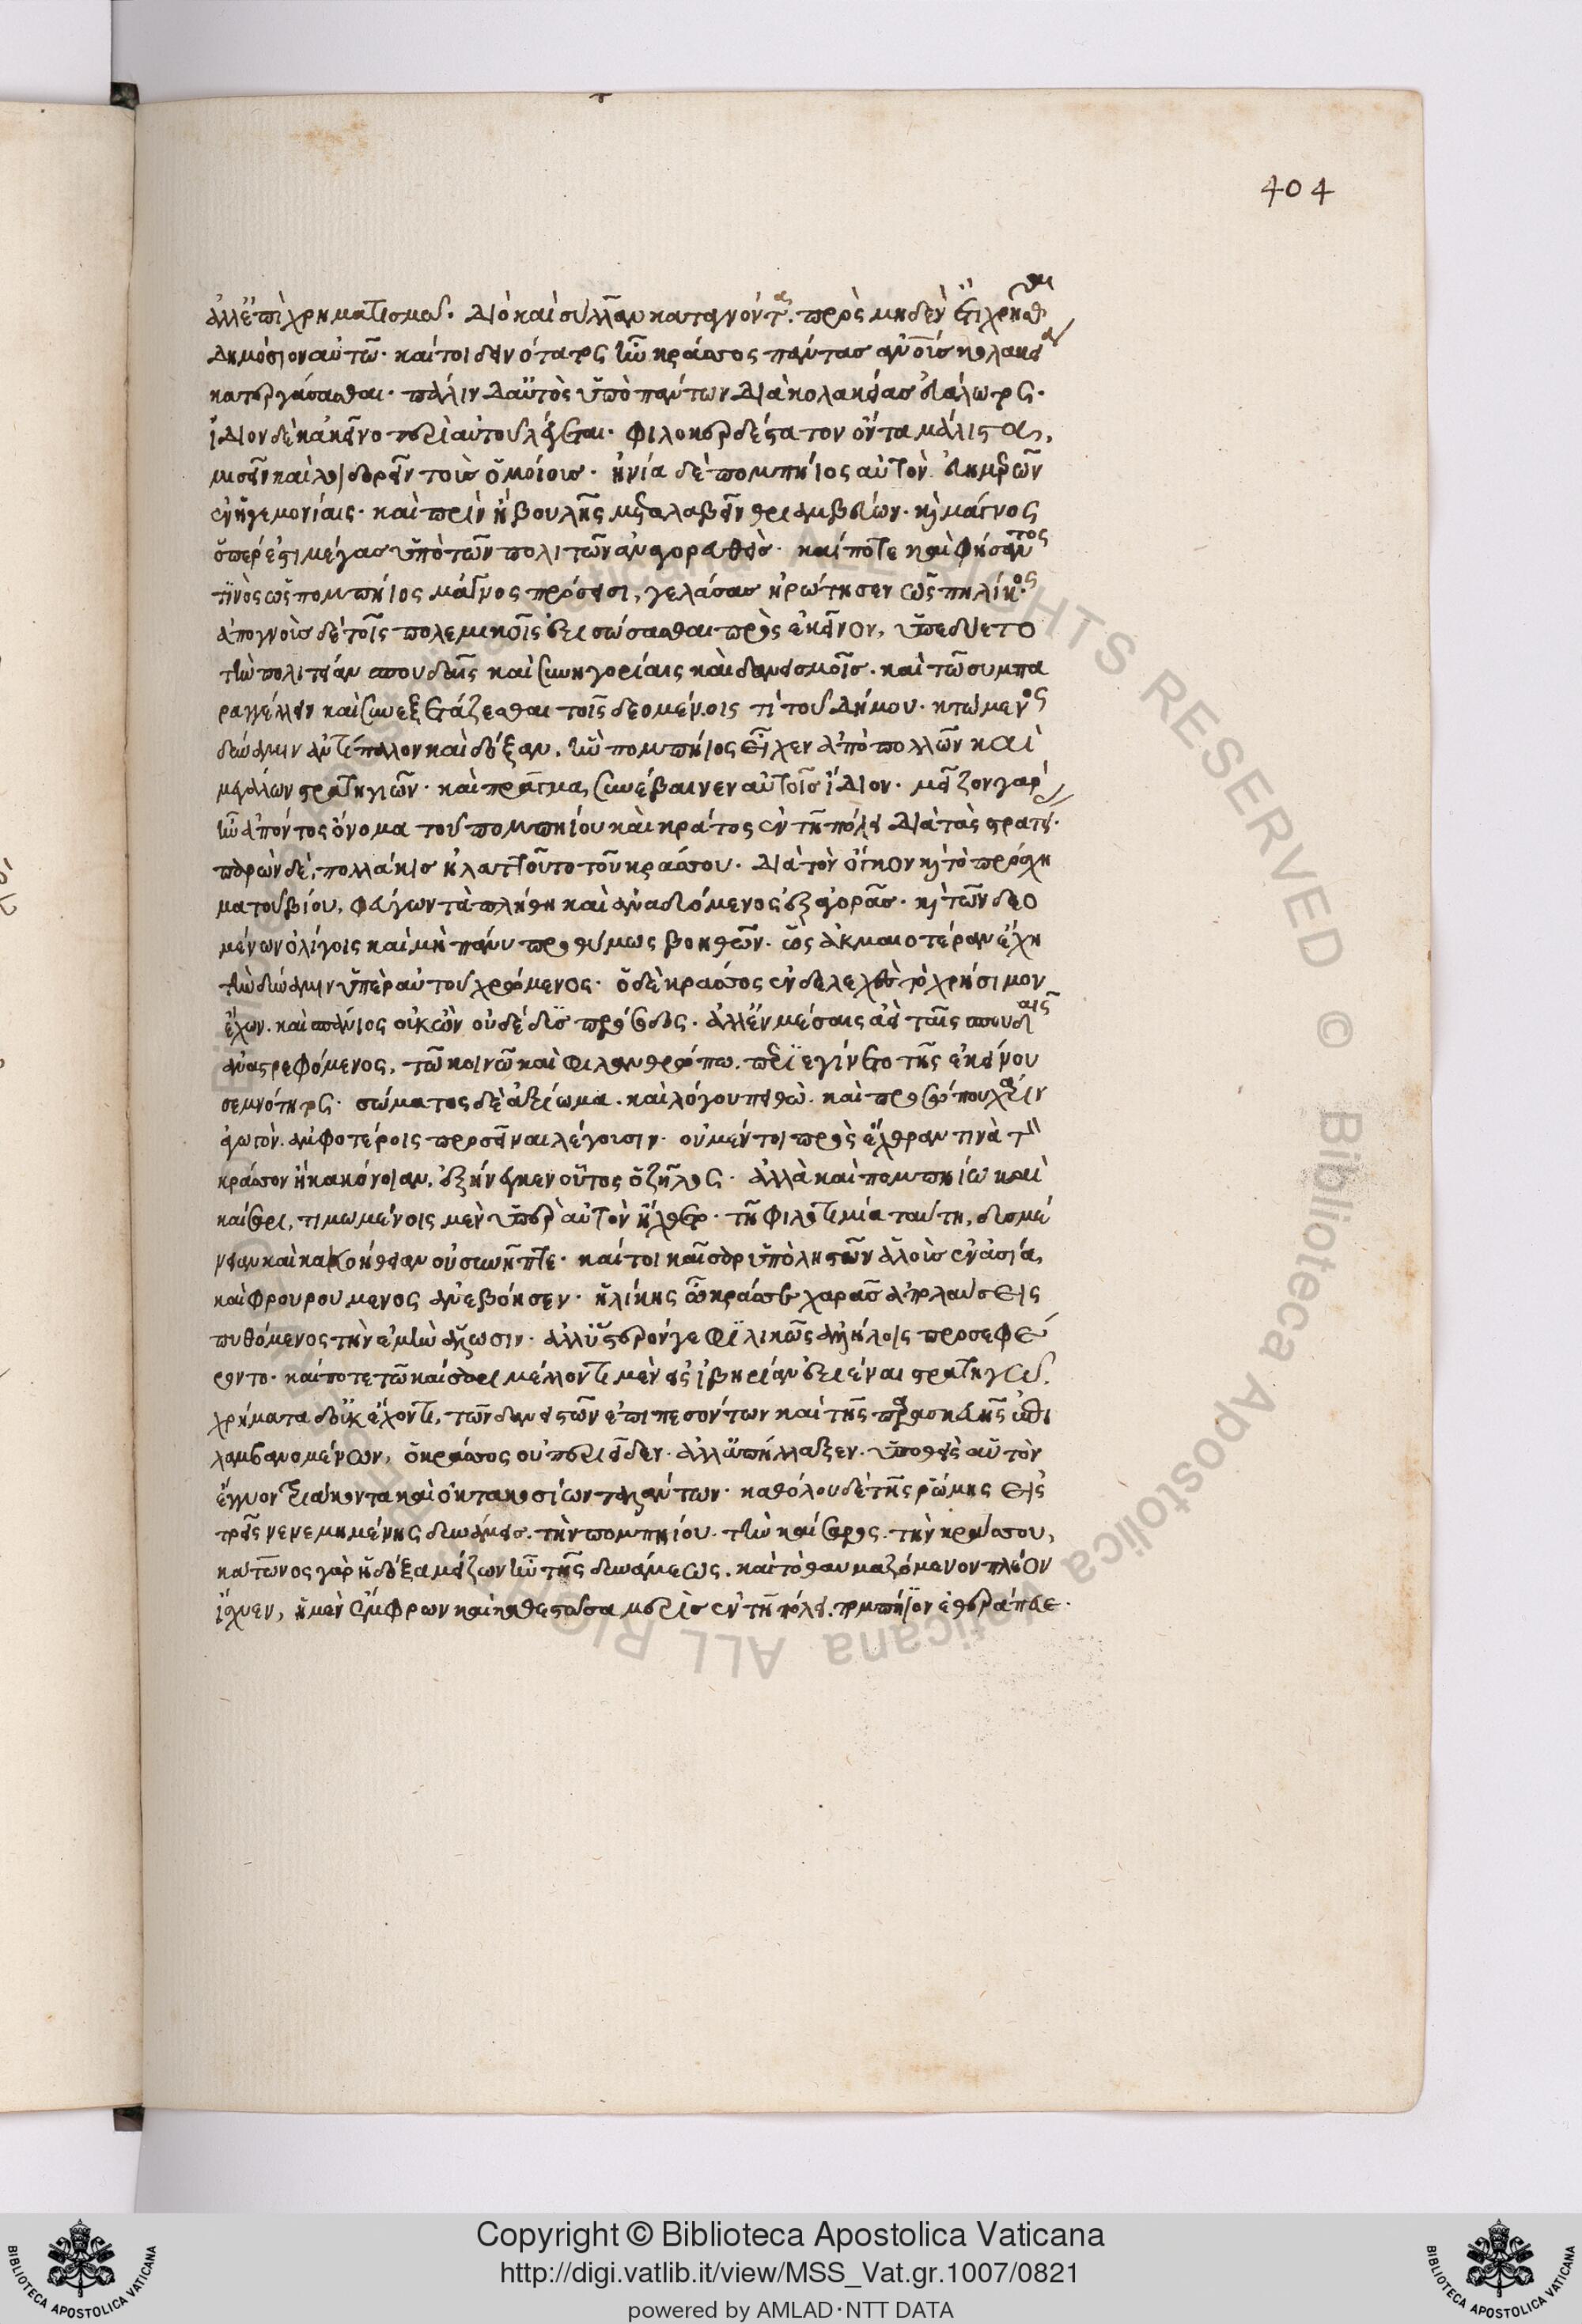 404
ἀλλ' ἐπὶ χρηματισμοῦ. διὸ καὶ σύλλαν καταγνόντας. πρὸς μηδὲν ἔτι χρῆσθαι
δημόσιον αὐτῶ. καίτοι δεινότατος ἦν κράσσος πάντας ἀνοῖς κολακεία
κατεργάσασθαι. πάλιν δ' αὐτὸς ὑπὸ πάντων διὰ κολακείας εὐάλωτος.
ἴδιον δὲ κἀκεῖνο περὶ αὐτοῦ λέγεται. φιλοκερδέστατον ὄντα μάλιστα,
μισεῖν καὶ λοιδορεῖν τοὺς ὁμοίους. ἠνία δὲ πομπήϊος αὐτὸν. εὐημερῶν
ἐν ἡγεμονίαις. καὶ πρὶν ἢ βουλῆς μεταλαβεῖν θριαμβεύων. καὶ μάγνος
ὅπερ ἐστὶ μέγας ὑπὸ τῶν πολιτῶν ἀναγορευθείς. καί ποτε καὶ φήσαντος
τινὸς ὡς πομπήϊος μάγνος πρόσεισι, γελάσας ἠρώτησεν ὡς πηλίκος
ἀπογνοὺς δὲ τοῖς πολεμικοῖς ἐξισώσασθαι πρὸς ἐκεῖνον, ὑπεδύετο
τὴν πολιτείαν σπουδαῖς καὶ συνηγορίαις καὶ δανεισμοῖς. καὶ τῶ συμπα
ραγγέλλειν καὶ συνεξετάζεσθαι τοῖς δεομένοις τὶ τοῦ δήμου. κτώμενος
δύναμιν ἀντίπαλον καὶ δόξαν, ἣν πομπήϊος εἶχεν ἀπὸ πολλῶν καὶ
μεγάλων στρατηγιῶν. καὶ πρᾶγμα, συνέβαινεν αὐτοῖς ἴδιον. μεῖζον γὰρ
ἦν ἀπόντος ὄνομα τοῦ πομπηίου καὶ κράτος ἐν τῆ πόλει διὰ τὰς στρατεί.
παρὼν δὲ, πολλάκις ἠλαττοῦτο τοῦ κράσσου. διὰ τὸν ὄγκον καὶ τὸ πρόσχη
μα τοῦ βίου, φεύγων τὰ πλήθη καὶ ἀναδυόμενος ἐξ ἀγορᾶς. καὶ τῶν δεο
μένων ὀλίγοις καὶ μὴ πάνυ προθύμως βοηθῶν. ὡς ἀκμαιοτέραν ἔχη
τὴν δύναμιν ὑπὲρ αὐτοῦ χρώμενος. ὁ δὲ κράσσος ἐνδελεχὲς τὸ χρήσιμον
ἔχων. καὶ σπάνιος οὐκ ὢν οὐδὲ δυσπρόσοδος. ἀλλ' ἐν μέσαις ἀεὶ ταῖς σπουδαῖς
ἀναστρεφόμενος, τῶ κοινῶ καὶ φιλανθρώπω. περιεγίνετο τῆς ἐκείνου
σεμνότητος. σώματος δὲ ἀξίωμα. καὶ λόγου πειθὼ. καὶ προσώπου χάριν
ἀγωγὸν. ἀμφοτέροις προσεῖναι λέγουσιν. οὐ μέντοι πρὸς ἔχθραν τινὰ τὸν
κράσσον ἢ κακόνοιαν, ἐξήνεγκεν οὗτος ὁ ζῆλος. ἀλλὰ καὶ πομπηίω καὶ
καίσαρι, τιμωμένοις μὲν ὑπὲρ αὐτὸν ἤχθετο. τῆ φιλοτιμία ταύτη, δυσμέ
νειαν καὶ κακοήθειαν οὐ συνῆπτε. καίτοι καῖσαρ ὑπὸ ληστῶν ἁλοὺς ἐν ἀσία,
καὶ φρουρούμενος ἀνεβόησεν. ἡλίκης ὦ κράσσε χαρᾶς ἀπολαύσεις
πυθόμενος τὴν ἐμὴν ἅλωσιν. ἀλλ' ὕστερόν γε φιλικῶς ἀλλήλοις προσεφέ
ροντο. καί ποτε τῶ καίσαρι μέλλοντι μὲν εἰς ἰβηρίαν ἐξιέναι στρατηγῶ.
χρήματα δ' οὐκ ἔχοντι, τῶν δανειστῶν ἐπιπεσόντων καὶ τῆς παρασκευῆς ἐπι
λαμβανομένων, ὁ κράσσος οὐ περιεῖδεν. ἀλλ' ἀπήλλαξεν. ὑποθεὶς αὑτὸν
ἔγγυον τριάκοντα καὶ ὀκτακοσίων ταλάντων. καθόλου δὲ τῆς ῥώμης εἰς
τρεῖς νενεμημένης δυνάμεις. τὴν πομπηίου. τὴν καίσαρος. τὴν κράσσου,
κάτωνος γὰρ ἡ δόξα μείζων ἦν τῆς δυνάμεως. καὶ τὸ θαυμαζόμενον πλέον
ἴσχυεν, ἡ μὲν ἔμφρων καὶ καθεστῶσα μερὶς ἐν τῆ πόλει. πομπήϊον ἐθεράπευε.
Copyright © Biblioteca Apostolica Vaticana
http://digi.vatlib.it/view/MSS_Vat.gr.1007/0821
powered by AMLAD·NTT DATA
BIBLIOTECA APOSTOLICA VATICANA
BIBLIOTECA APOSTOLICA VATICANA